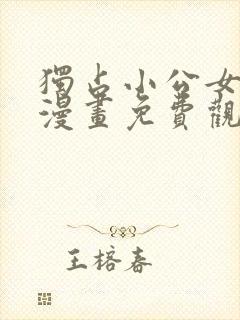 獨占小公女
漫畫免費觀
王榕春